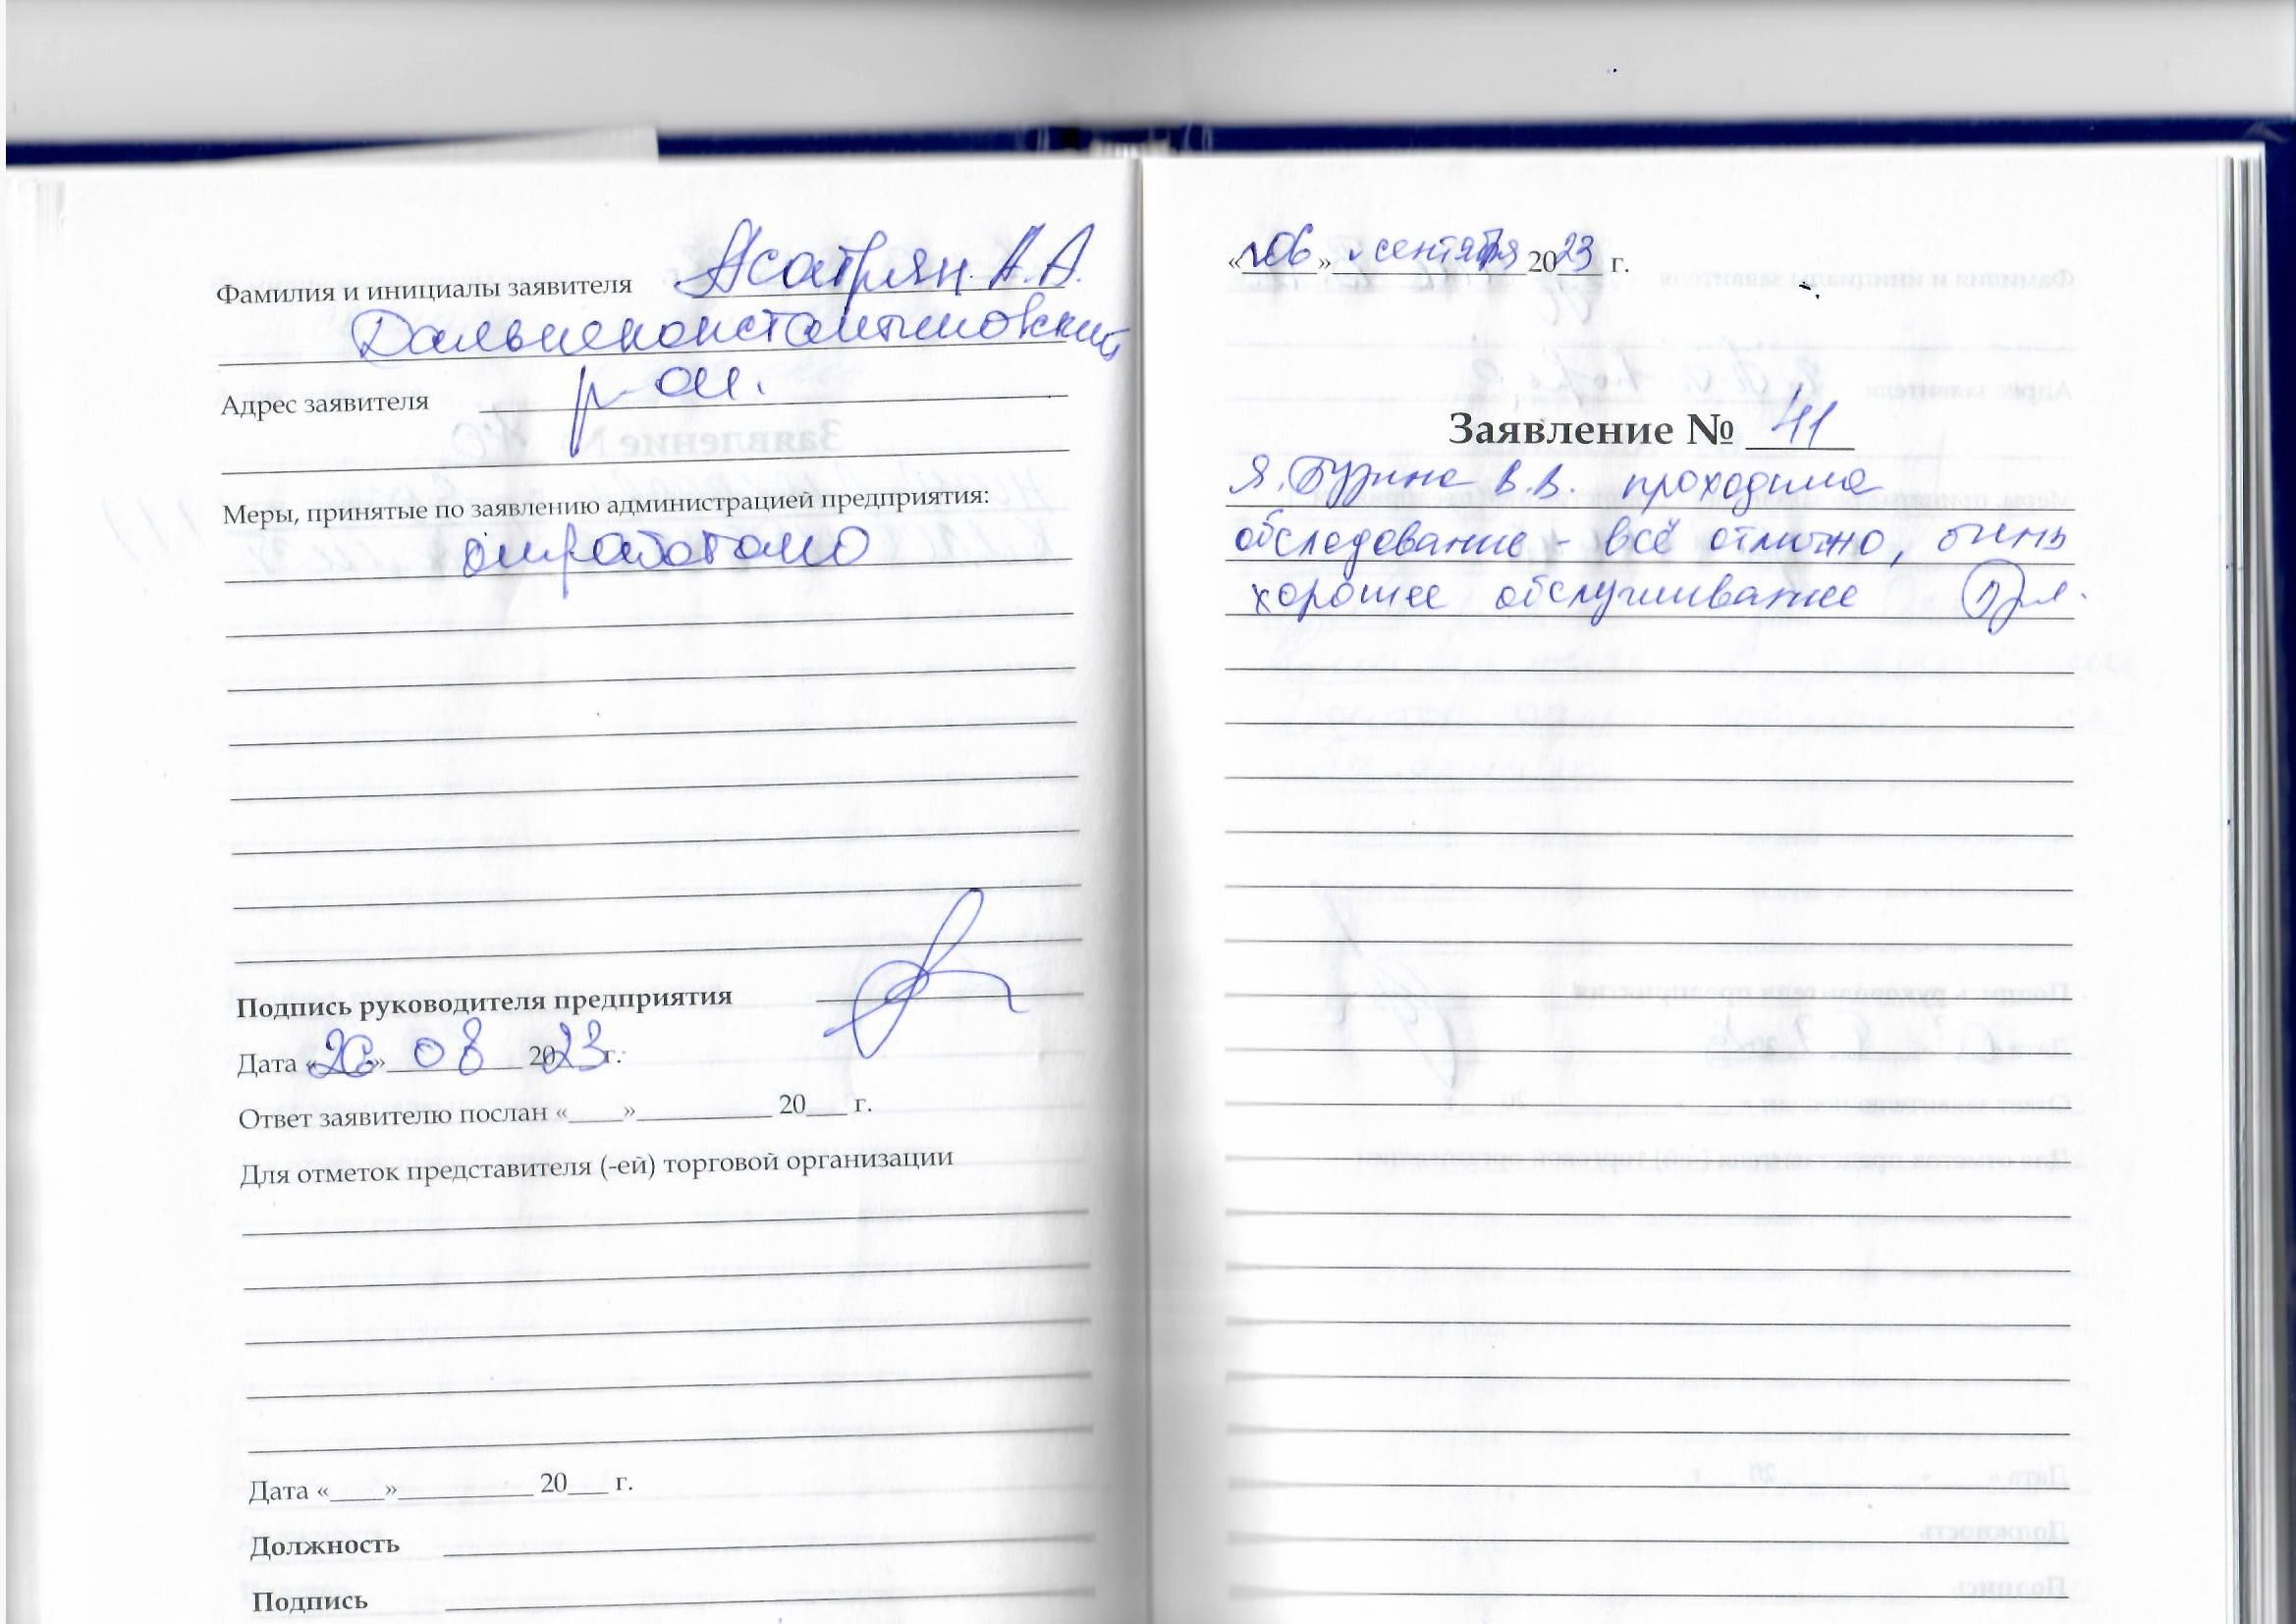 Фамилия и инициалы заявителя Асатрян А.А.
Дальнеконстантиновский
Адрес заявителя р-он.
Меры, принятые по заявлению администрацией предприятия:
отработано
Подпись руководителя предприятия
Дата «26» 08 2023 г.
Ответ заявителю послан «____»__________ 20___ г.
Для отметок представителя (-ей) торговой организации
Дата «____»__________ 20___ г.
Должность
Подпись
«06» сентября 2023 г.
Заявление № 41
Я, Бузина В.В. проходила
обследование - всё отлично, очень
хорошее обслуживание